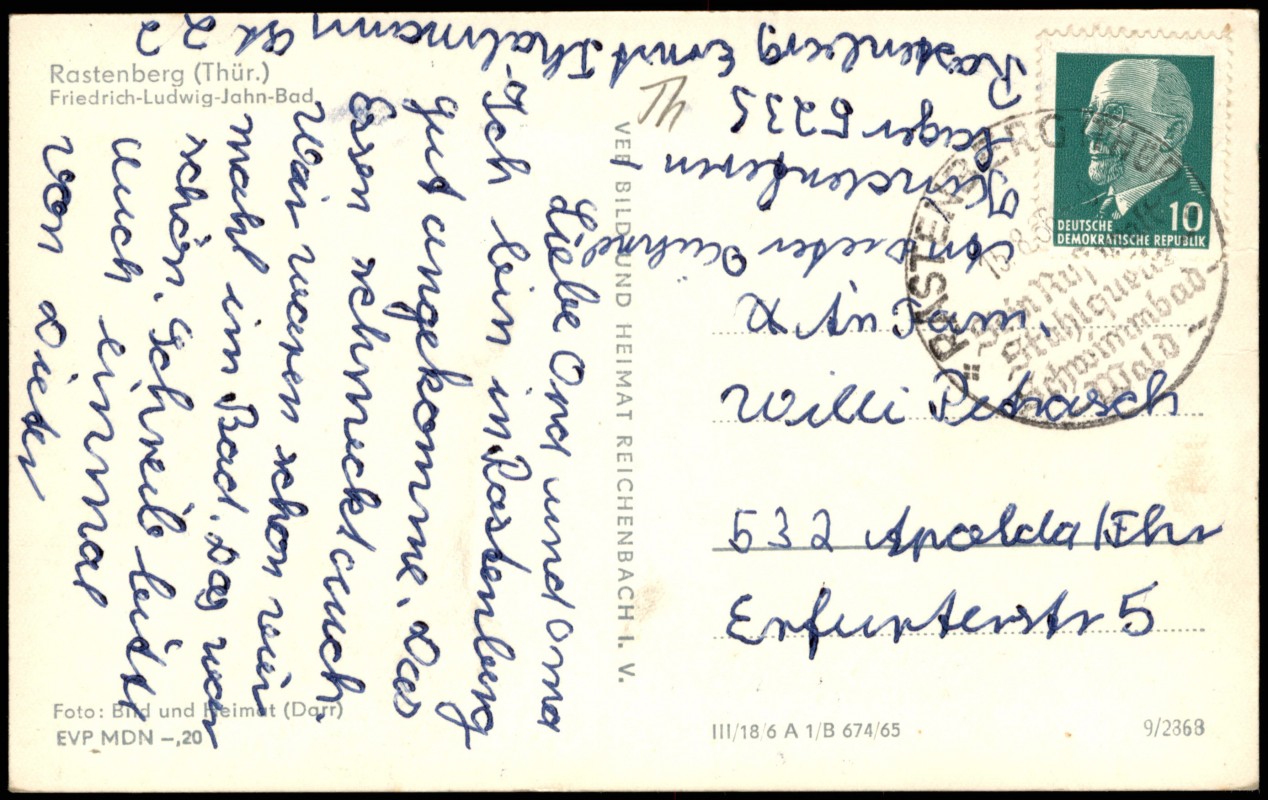 Rastenberg (Thür.)
Friedrich-Ludwig-Jahn-Bad
Liebe Ond und Oma
Ich bin in Rastenberg
gut angekomme. Das
Essen schmeckt auch.
Wir waren schon vier
mahl im Bad. Das war
schön. Schreib bitte
auch einmal
von Dieter
Foto: Bild und Heimat (Darr)
EVP MDN –,20
VEB BILD UND HEIMAT REICHENBACH I. V.
Th
Dieter
Kinderferien
Lager 5235
Rastenberg Ernst Thälmann Str 22
DEUTSCHE
DEMOKRATISCHE REPUBLIK
10
RASTENBERG
Stahlquelle
Schwimmbad
Wald
An Fam.
Willi Petrasch
532 Apolda/Thr
Erfurterstr 5
III/18/6 A 1/B 674/65
9/2868